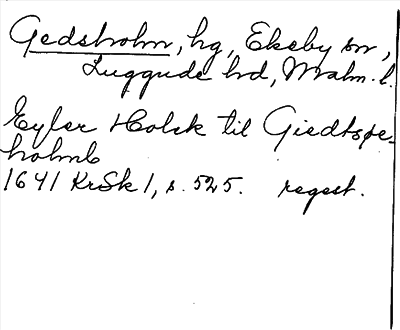 Gedsholm, hg, Ekeby sn,
Luggude hd, Malm. l.
Eyler Holck til Giedtzpe-
holmb
1641 KrSk 1, s. 525. regest.